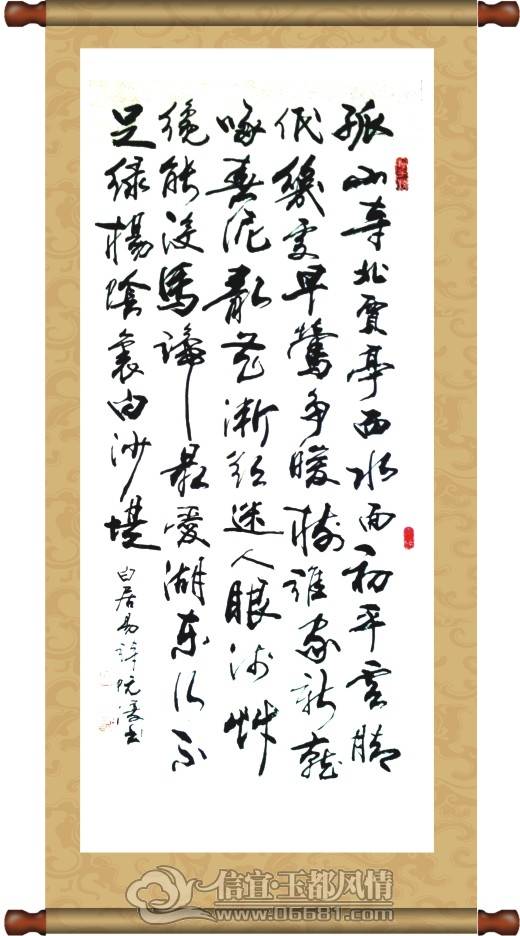 孤山寺北賈亭西水面初平雲脚
低幾處早鶯争暖樹誰家新燕
啄春泥亂花漸欲迷人眼浅草
纔能没馬蹄最愛湖東行不
足绿楊陰裏白沙堤
白居易詩 书
信宜·玉都风情
www.06681.com